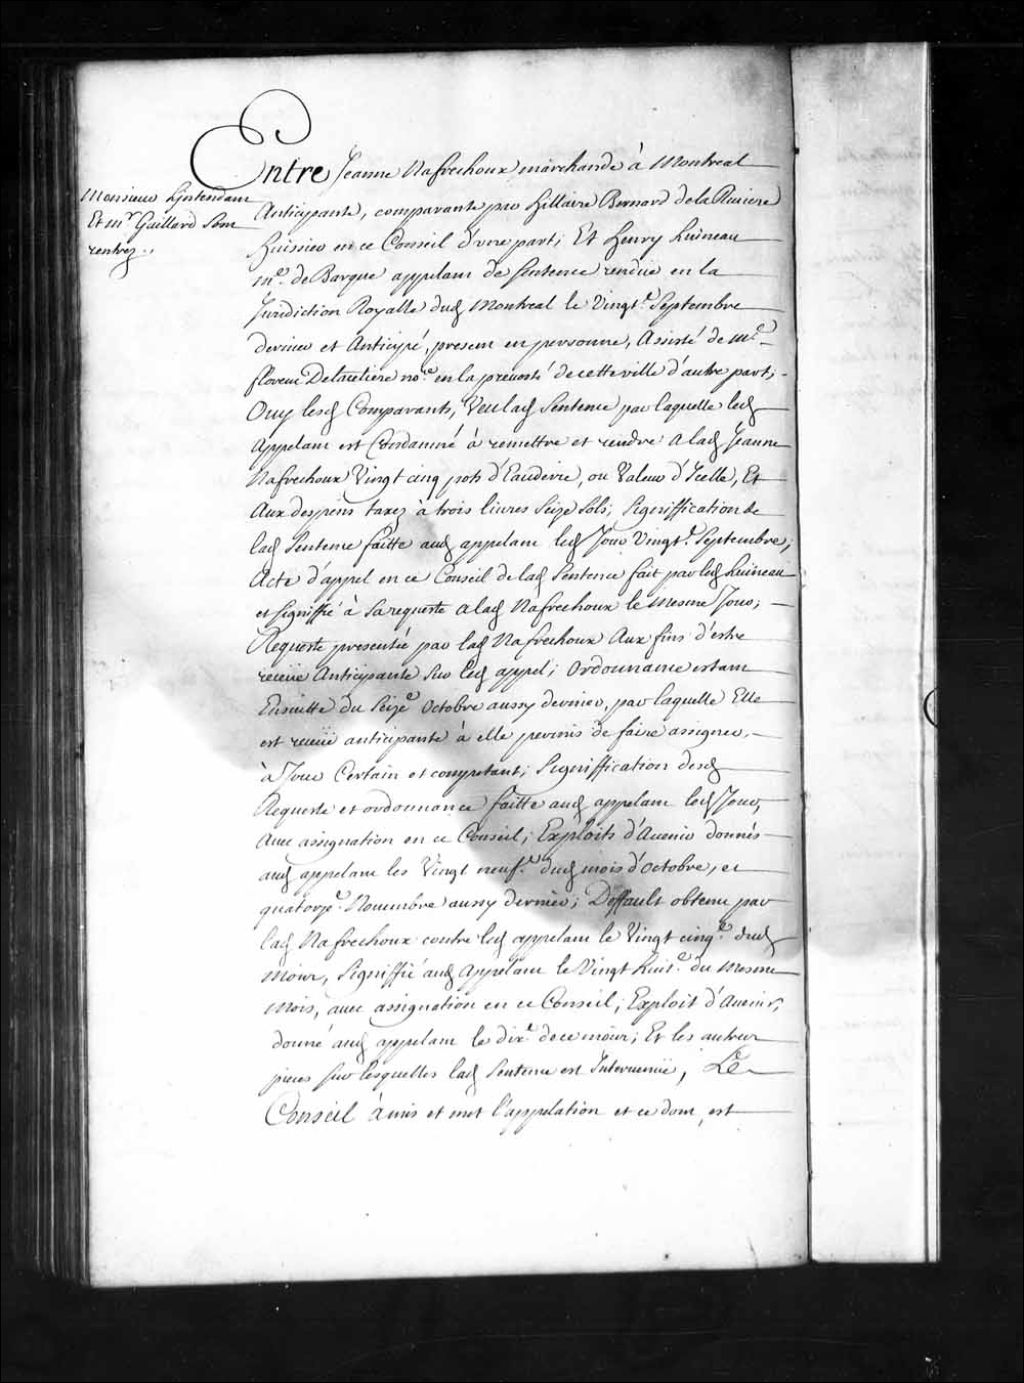 Entre Jeanne Nafrechoux marchande à Montreal
Monsieur Lintendant
Et mr. Gaillard Sont
rentrez.
Anticipante, comparante par Hillaire Bernard de la Riuiere
huissier en ce Conseil d'vne part; Et henry huineau
me. de Barque appelant de sentence rendue en la
Juridiction Royalle dud Montreal le Vingte. Septembre
dernier et Anticipé, present en personne, Assisté de me.
florent Delacetiere nore. en la preuosté de cette ville d'autre part;
Ouy lesd Comparants, Veu lad Sentence par laquelle led
Appelant est Condamné à remettre et rendre a lad Jeanne
Nafrechoux Vingt cinq pots d'Eaudevie, ou Valeur d'Icelle, Et
Aux despens taxez à trois liures Seize Sols; Signiffication de
lad Sentence faitte aud appelant led Jour Vingte. Septembre;
Acte d'appel en ce Conseil de lad Sentence fait par led huineau
et signiffié à Sa requeste a lad Nafrechoux le mesme Jour;
Requeste presentée par lad Nafrechoux Aux fins d'estre
receüe Anticipante Sur led appel; Ordonnance estant
Ensuitte du Seize Octobre aussy dernier, par laquelle Elle
est receüe anticipante à elle permis de faire assigner,
à Jour Certain et competant; Signiffication desd
Requeste et ordonnance faitte aud appelant led Jour,
Auec assignation en ce Conseil; Exploits d'Auenir donnés
aud appelant les Vingt neufe. dud mois d'octobre, et
quatorze. Nouembre aussy dernier; Deffault obtenu par
lad Nafrechoux contre led appelant le Vingt cinqe. dud
mois, Signiffié aud Appelant le Vingt huite. du Mesme
Mois, auec assignation en ce Conseil; Exploit d'Auenir,
donné aud appelant le dixe. de ce mois; Et les autres
pieces sur lesquelles lad Sentence est Interuenüe, Le
Conseil à mis et met l'appelation et ce dont est